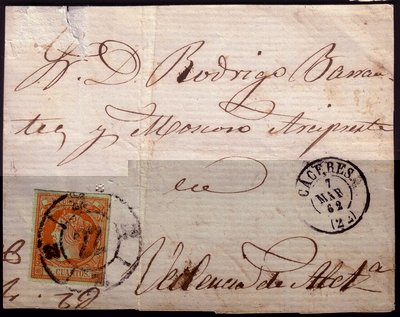 Sr. D. Rodrigo Barran
tes y Moscoso Arcipreste
en
Valencia de Alcta
CACERES.
7
MAR
62
(22)
CUATOS